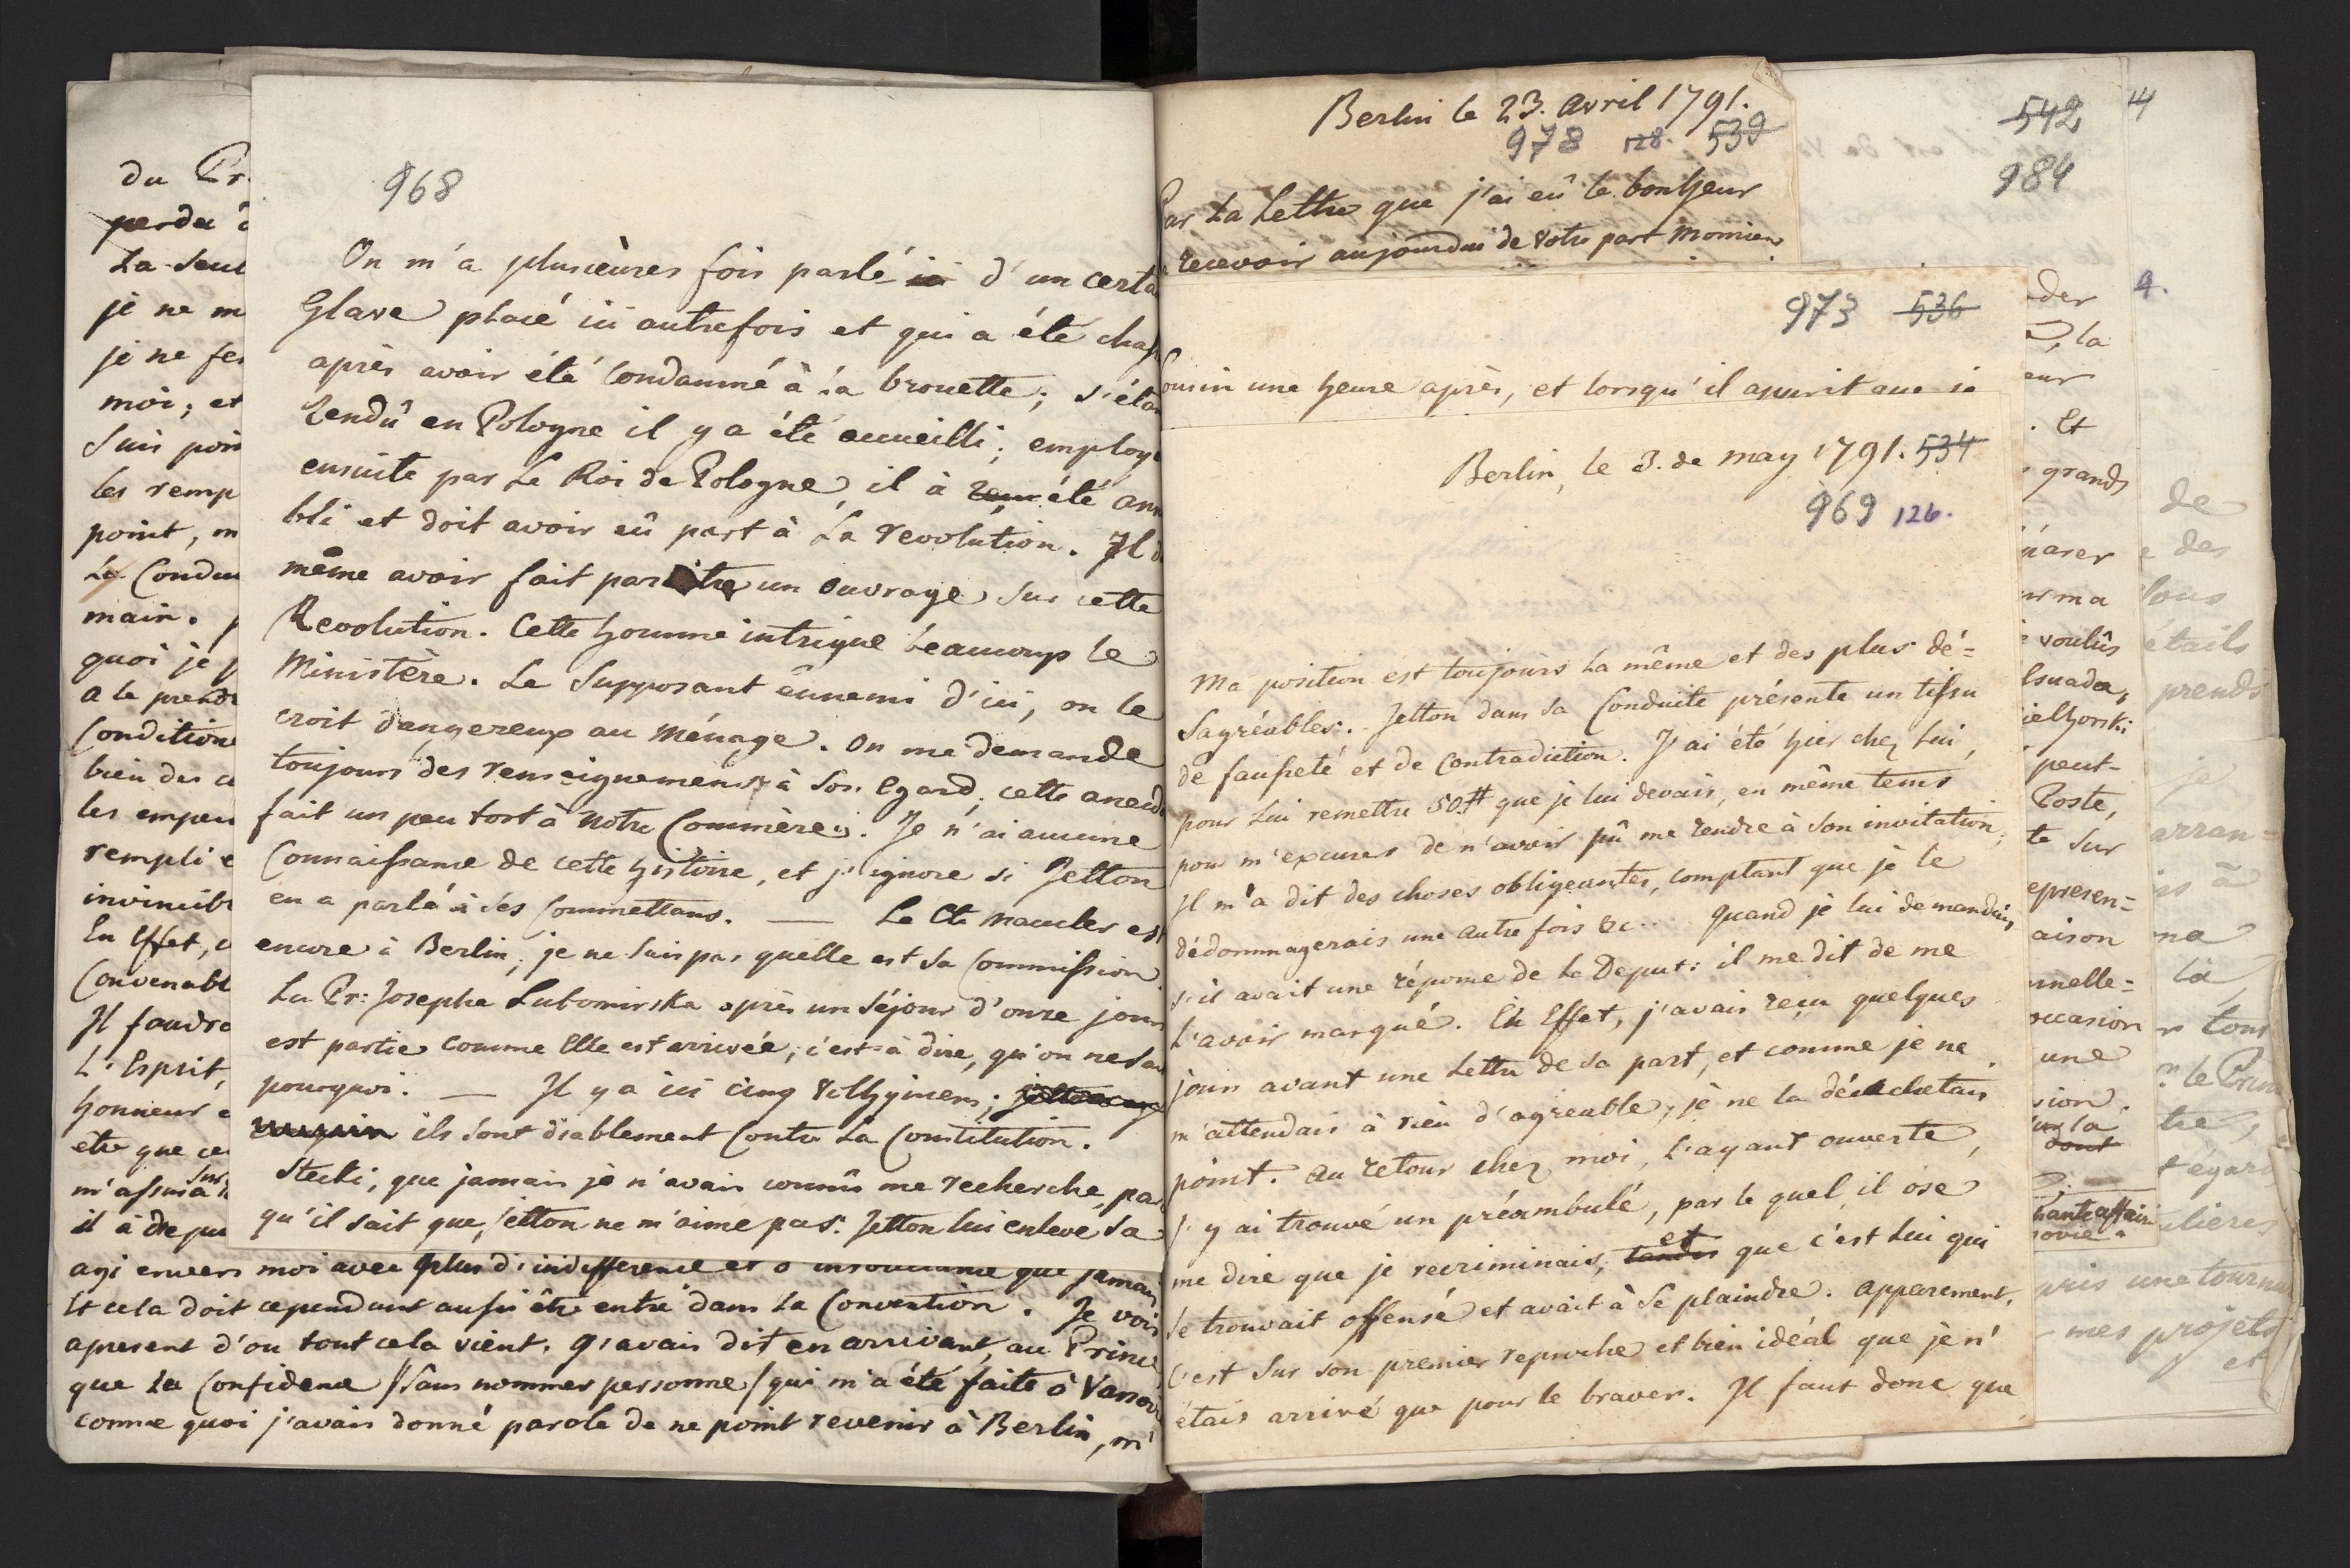 du Pr
perdu
La Seul
je ne m
je ne fe
moi; et
Suis poin
les remp
point, m
La Condu
main.
quoi je
a le prend
Condition
bien des
les empe
rempli e
invincib
En Effet,
Convenabl
Il faudra
L'Esprit,
honneur
être que ce
m'assura
sur
il à depu
agi envers moi avec plus d'indifference et d'insouciance que jamais
Et cela doit cependant aussi être entré dans la Convention. Je vois
apresent d'ou tout cela vient. J'avais dit en arrivant, au Prince
que La Confidence /:sans nommer personne/ qui m'a été faite à Varsov
comme quoi j'avais donné parole de ne point revenir à Berlin, m'
968
On m'a plusieures fois parlé ici d'un certa
Glave placé ici autrefois et qui a été chas
après avoir été Condamné à la brouette; s'étan
rendû en Pologne il y a été accueilli; employ
ensuite par Le Roi de Pologne, il à été ann
bli et doit avoir eû part à La revolution. Il d
même avoir fait paroitre un Ouvrage sur cette
Revolution. Cette homme intrigue beaucoup le
Ministère. Le Supposant ênnemi d'ici, on le
croit dangereux au Ménage. On me demande
toujours des renseignemens à Son Egard; cette anecd
fait un peu tort à Notre Commère. Je n'ai aucune
Connaissance de cette histoire, et j'ignore si Jetton
en a parlé à Ses Commettans. — Le Cte Maucler est
encore à Berlin; je ne sais pas quelle est sa Commission
La Pr: Josephe Lubomirska après un Séjour d'onze jours
est partie comme Elle est arrivée; c'est à dire, qu'on ne sa
pourquoi. — Il y a ici cinq Volhyniens;
ils sont diablement Contre La Constitution.
Stecki, que jamais je n'avais connûs me recherche, par
qu'il sait que Jetton ne m'aime pas. Jetton lui enleve Sa
Berlin le 23. Avril 1791.
978 128. 539
Par La Lettre que j'ai eû le bonheur
recevoir aujourdui de Votre part Monsieur
973 536
Cousin une heure après, et lorsqu'il apprit que je
Berlin, le 3. de May 1791. 534
969 126.
Ma position est toujours La même et des plus dé=
Sagréables. Jetton dans Sa Conduite présente un tissu
de fausseté et de Contradiction. J'ai été hier chez Lui,
pour Lui remettre 50 # que je lui devais, en même tems
pour m'excuser de n'avoir pû me rendre à Son invitation;
Il m'a dit des choses obligeantes, comptant que je le
dédommagerais une autre fois &c.. Quand je lui demandais,
s'il avait une réponse de La Deput: il me dit de me
L'avoir marqué. En Effet, j'avais reçu quelques
jours avant une Lettre de Sa part, et comme je ne
m'attendais à rien d'agreable, je ne la décachetais
point. Au retour chez moi, L'ayant ouverte,
J'y ai trouvé un préambule, par le quel il ose
me dire que je recriminais, tandis et que c'est Lui qui
Se trouvait offensé et avait à Se plaindre. Apparement,
C'est Sur Son premier reproche et bien idéal que je n'
étais arrivé que pour le braver. Il faut donc que
542 4
984
der 9.
, la
eur
. Et
grands
parer
ur ma
voulûs
lsuader,
ielhorski
peut-
Poste,
te Sur
epresen=
aison
nnelle=
occasion
une
sion.
la
dont
hante affair
sovie.
de
e des
tous
étails
prends
je
arran=
is à
ma
la
r tout
le Prin
tre,
t'égard
lieres
pris une tournu
mes projets
et